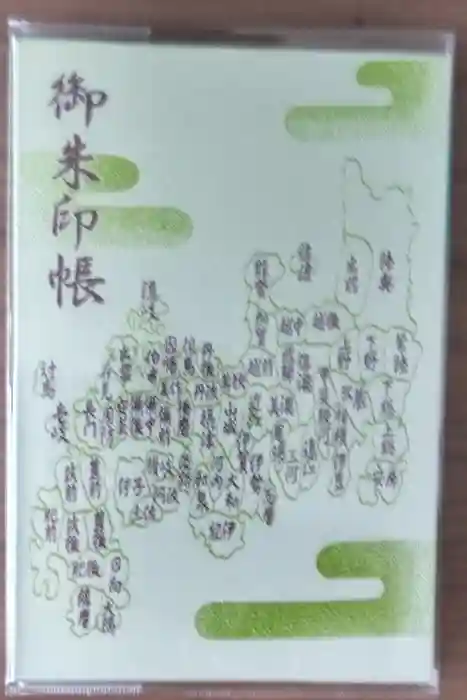 御朱印帳
佐渡
能登
陸奥
出羽
隠岐
加賀
越中
越後
上野
下野
常陸
越前
飛騨
信濃
出雲
伯耆
因幡
但馬
丹後
丹波
若狭
対馬
壱岐
長門
備後
備中
備前
播磨
摂津
山城
美濃
下総
上総
安房
武蔵
相模
伊豆
三河
伊賀
伊勢
志摩
河内
大和
和泉
紀伊
淡路
阿波
土佐
伊予
筑前
豊前
肥前
筑後
豊後
肥後
日向
薩摩
大隅